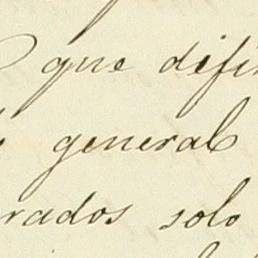 que difi
general
rados solo